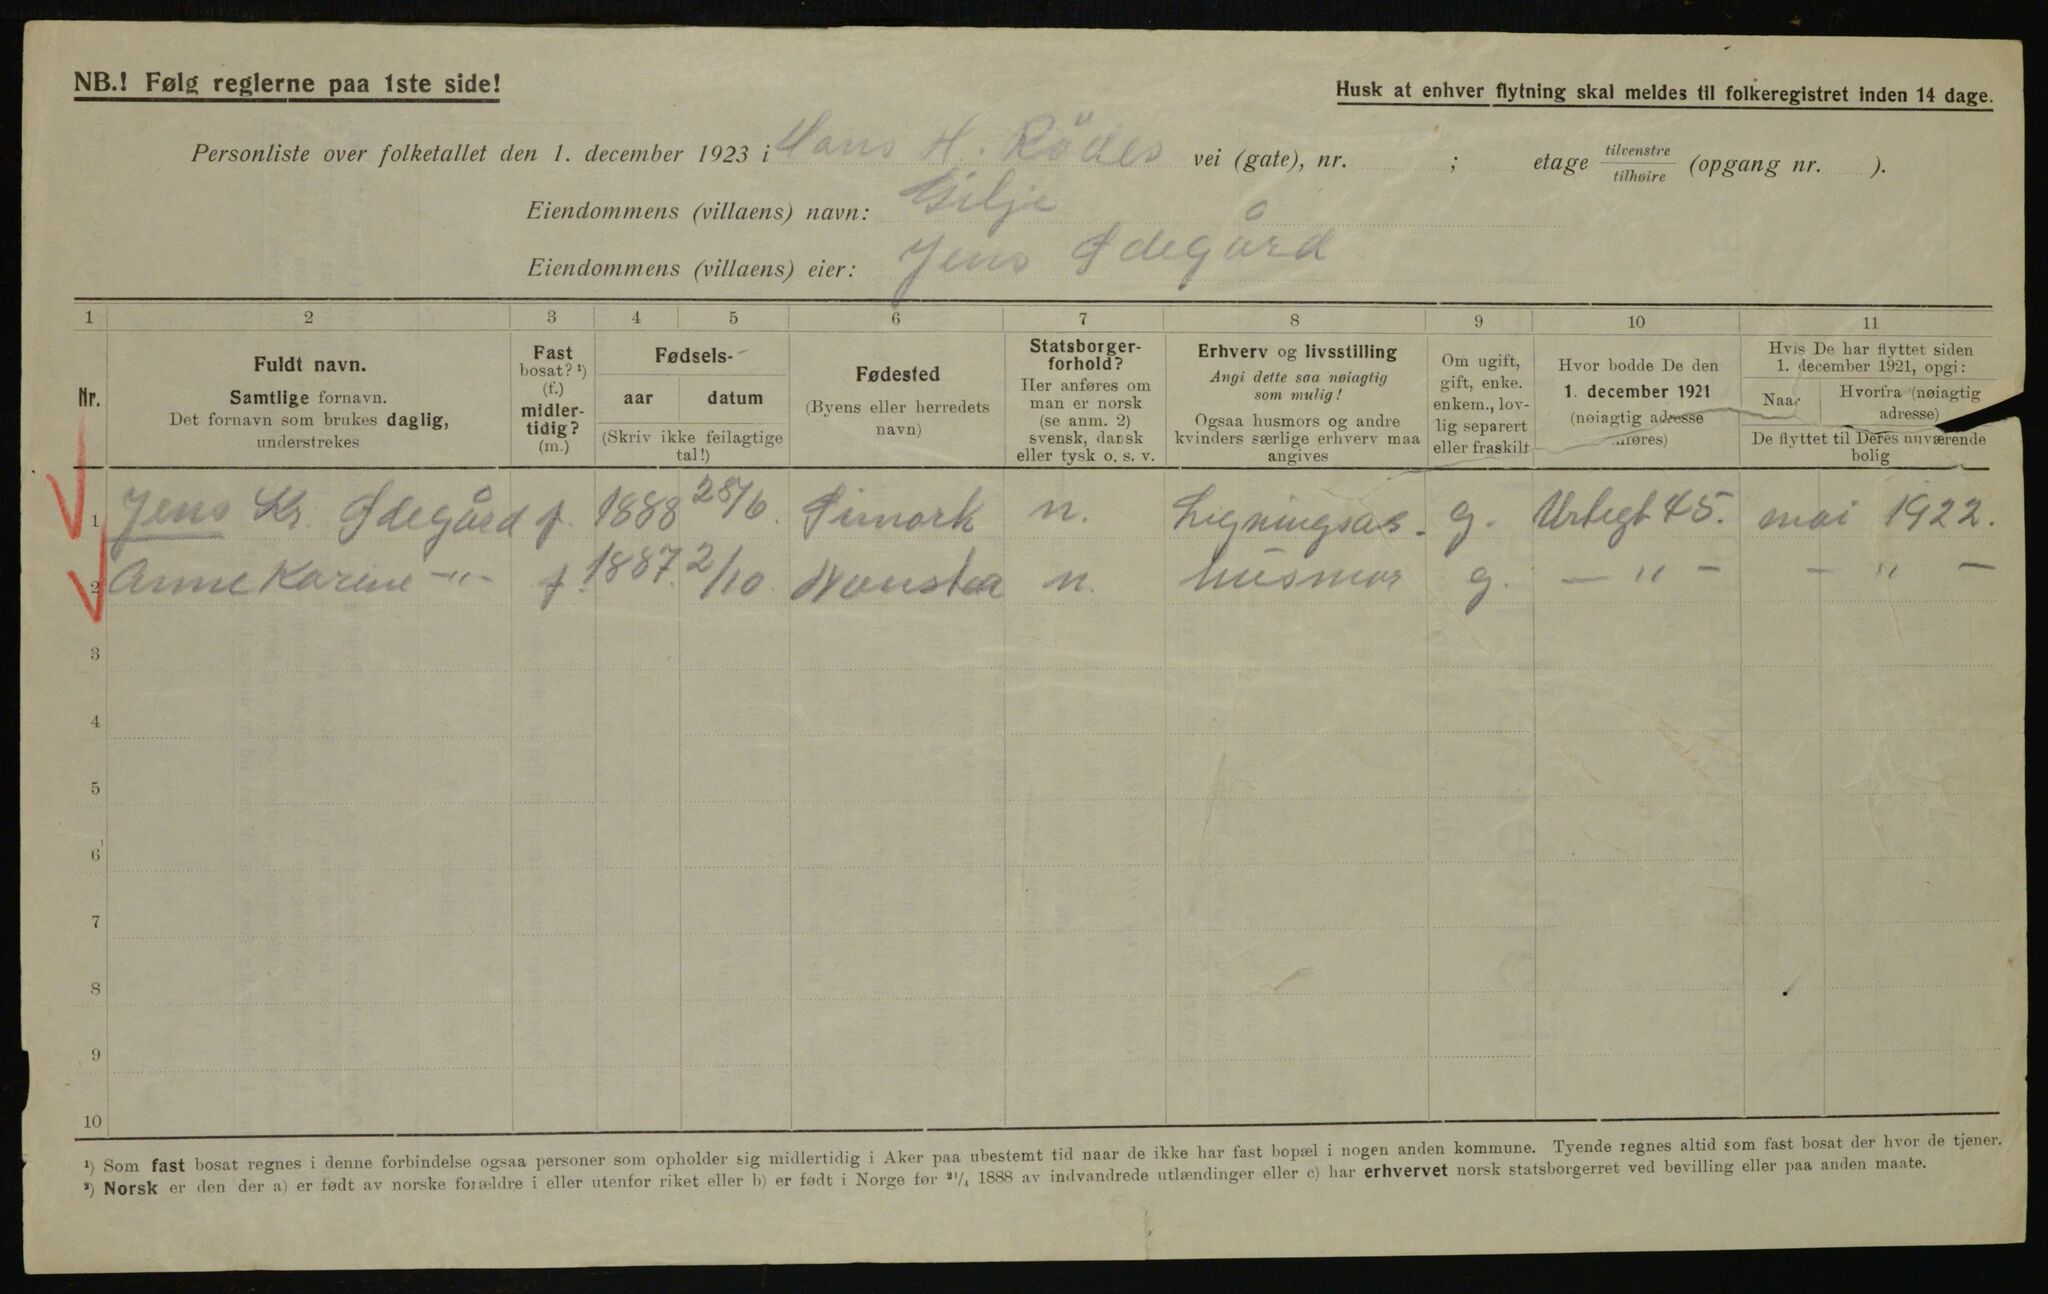 NB.! Følg reglerne paa 1ste side!
Husk at enhver flytning skal meldes til folkeregistret inden 14 dage.
Personliste over folketallet den 1. december 1923 i Hans H. Rödes vei (gate), nr. ; etage tilvenstre/tilhøire (opgang nr. ).
Eiendommens (villaens) navn: Gilje
Eiendommens (villaens) eier: Jens Ødegård
1 2 3 4 5 6 7 8 9 10 11
Nr.
Fuldt navn.
Samtlige fornavn.
Det fornavn som brukes daglig,
understrekes
Fast
bosat? ¹)
(f.)
midler-
tidig?
(m.)
Fødsels-
aar datum
(Skriv ikke feilagtige
tal!)
Fødested
(Byens eller herredets
navn)
Statsborger-
forhold?
Her anføres om
man er norsk
(se anm. 2)
svensk, dansk
eller tysk o. s. v.
Erhverv og livsstilling
Angi dette saa nøiagtig
som mulig!
Ogsaa husmors og andre
kvinders særlige erhverv maa
angives
Om ugift,
gift, enke.
enkem., lov-
lig separert
eller fraskilt
Hvor bodde De den
1. december 1921
(nøiagtig adresse
anføres)
Hvis De har flyttet siden
1. december 1921, opgi:
Naar
Hvorfra (nøiagtig
adresse)
De flyttet til Deres nuværende
bolig
1 Jens Kr. Ødegård f. 1888 28/6. n. Ligningsas. g. Urtegt 45. mai 1922.
2 Anne Karine -"- f. 1887. 2/10. n. husmor g. - " - - " -
3
4
5
6
7
8
9
10
¹) Som fast bosat regnes i denne forbindelse ogsaa personer som opholder sig midlertidig i Aker paa ubestemt tid naar de ikke har fast bopæl i nogen anden kommune. Tyende regnes altid som fast bosat der hvor de tjener.
²) Norsk er den der a) er født av norske forældre i eller utenfor riket eller b) er født i Norge før ²¹/₄ 1888 av indvandrede utlændinger eller c) har erhvervet norsk statsborgerret ved bevilling eller paa anden maate.